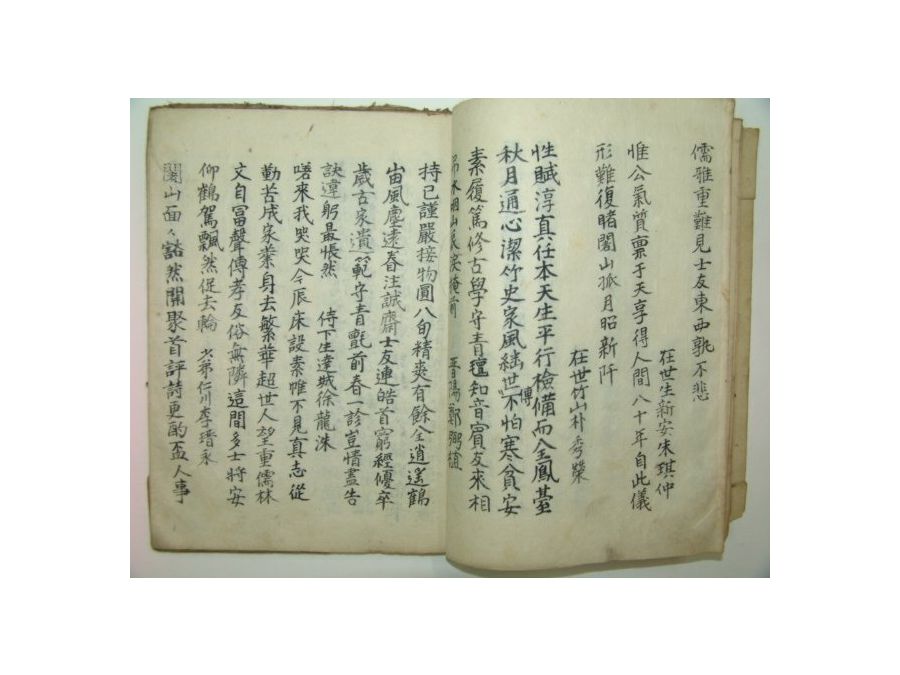 儒雅重難見士友東西孰不悲
在世生新安朱琪仲
惟公氣質禀于天享得人間八十年自此儀
形難復睹闍山孤月昭新阡
在世竹山朴秀榮
性賦淳真任本天生平行檢備而全鳳臺
秋月通心潔竹史家風繼世傳不怕寒貧安
素履篤修古學守青氊知音賓友來相
前 晋陽鄭
持已謹嚴接物圓八旬精爽有餘全逍遙鶴
宙風塵遠春注誠齋士友連皓首窮經優卒
歲古家遺範守青氈前春一診豈情盡告
訣違躬最悵然 侍下生達城徐龍洙
嗟來我哭哭今辰床設素帷不見真志從
勤苦成家業身去繁華超世人望重儒林
文自冨聲傳孝友俗無隣這間多士將安
仰鶴駕飄然促去輪 少弟仁川李瑨永
闍山面々豁然開聚首評詩更酌盃人事